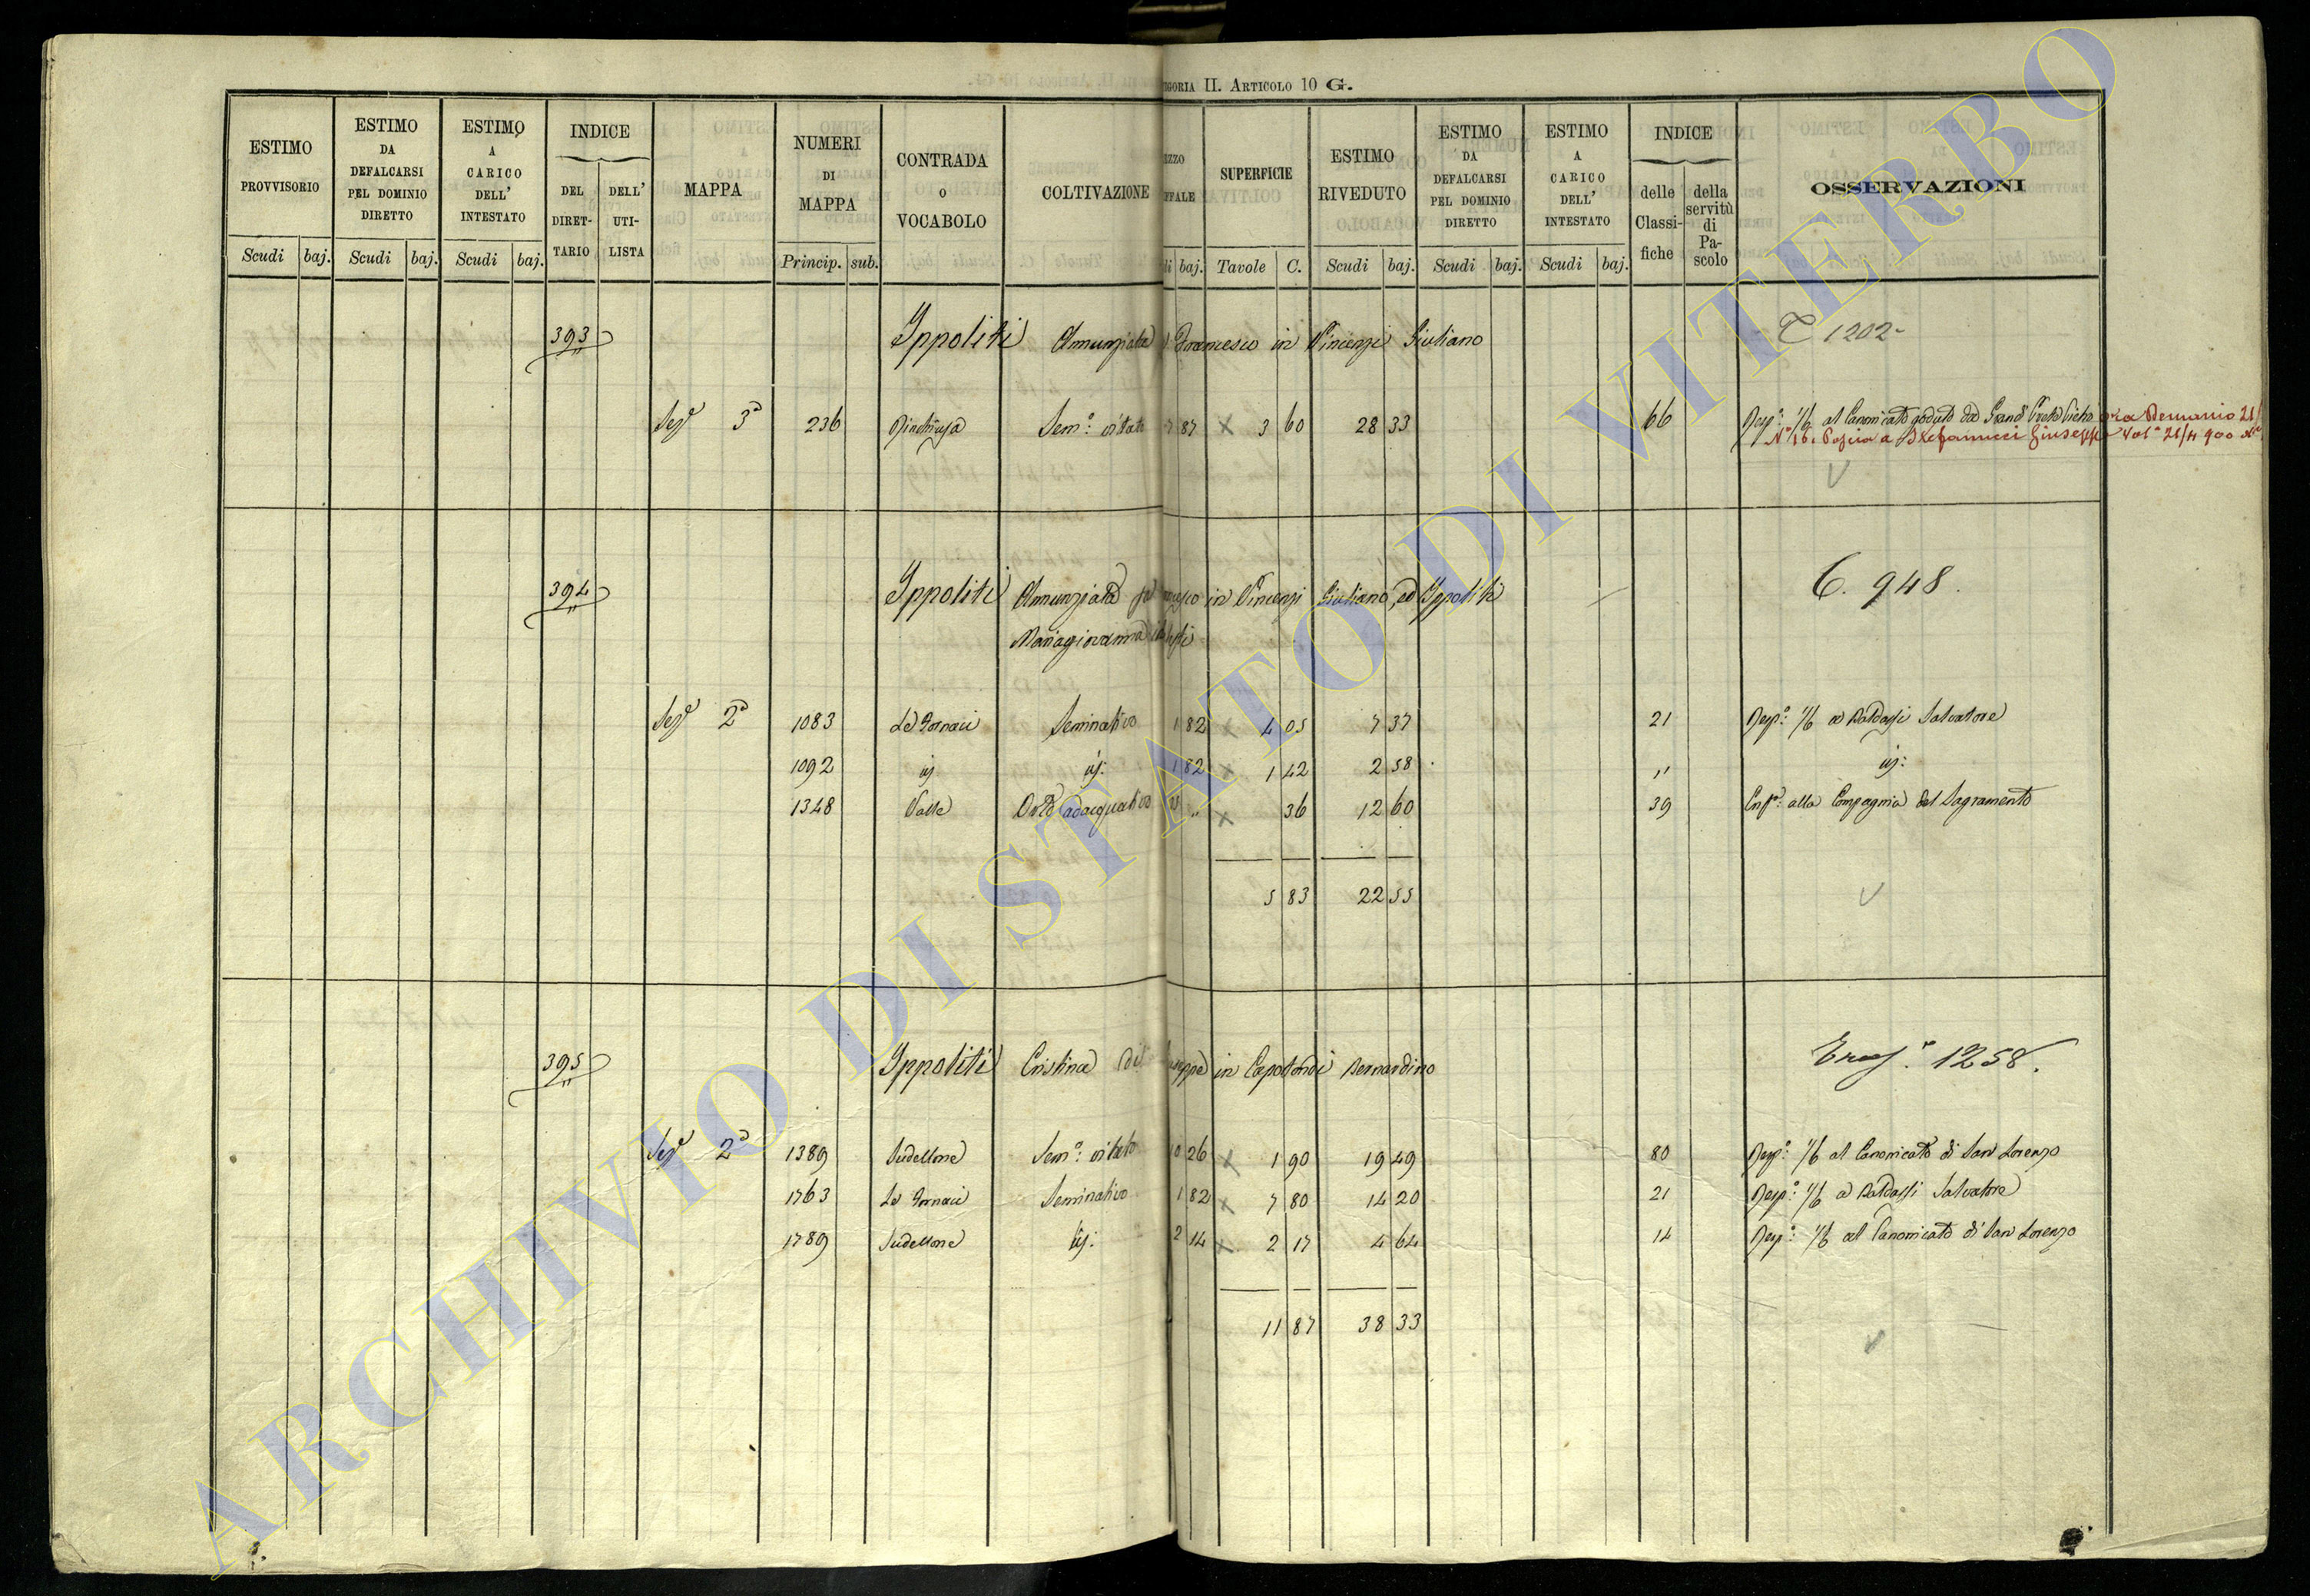 GORIA II. ARTICOLO 10 G.
ESTIMO PROVVISORIO
ESTIMO DA DEFALCARSI PEL DOMINIO DIRETTO
ESTIMO A CARICO DELL' INTESTATO
INDICE
DEL DIRET-TARIO
DELL' UTI-LISTA
MAPPA
NUMERI DI MAPPA
CONTRADA O VOCABOLO
COLTIVAZIONE
IZZO FFALE
SUPERFICIE
ESTIMO RIVEDUTO
ESTIMO DA DEFALCARSI PEL DOMINIO DIRETTO
ESTIMO A CARICO DELL' INTESTATO
INDICE
delle Classi-fiche
della servitù di Pa-scolo
OSSERVAZIONI
Scudi baj. Scudi baj. Scudi baj. Princip. sub. di baj. Tavole C. Scudi baj. Scudi baj. Scudi baj.
393 Ippoliti Annunziata Francesco in Vincenzi Giuliano 1202
Sez.e 3a 236 Sem.o vitato 7 87 3 60 28 33 66 Risp.a 1/6 al Canonicato goduto da
394 Ippoliti Annunziata in Vincenzi Giuliano, ed Ippoliti C. 948.
Mariagiovanna
Sez.e 2a 1083 Le Fornaci Seminativo 1 82 4 05 7 37 21 Risp.a 1/6 a Baldassi Salvatore
1092 id id: 1 82 1 42 2 58 " id:
1348 Valle Orto adacquativo 36 12 60 39 Enf.a alla Compagnia del Sagramento
5 83 22 55
395 Ippoliti Cristina di Giuseppe in Capotondi Bernardino 1258.
Sez.e 2a 1389 Sudellone Sem.o vitato 10 26 1 90 19 49 80 Risp.a 1/6 al Canonicato di San Lorenzo
1763 Le Fornaci Seminativo 1 82 7 80 14 20 21 Risp.a 1/6 a Baldassi Salvatore
1789 Sudellone id: 2 14 2 17 4 64 14 Risp.a 1/6 al Canonicato di San Lorenzo
11 87 38 33
ARCHIVIO DI STATO DI VITERBO